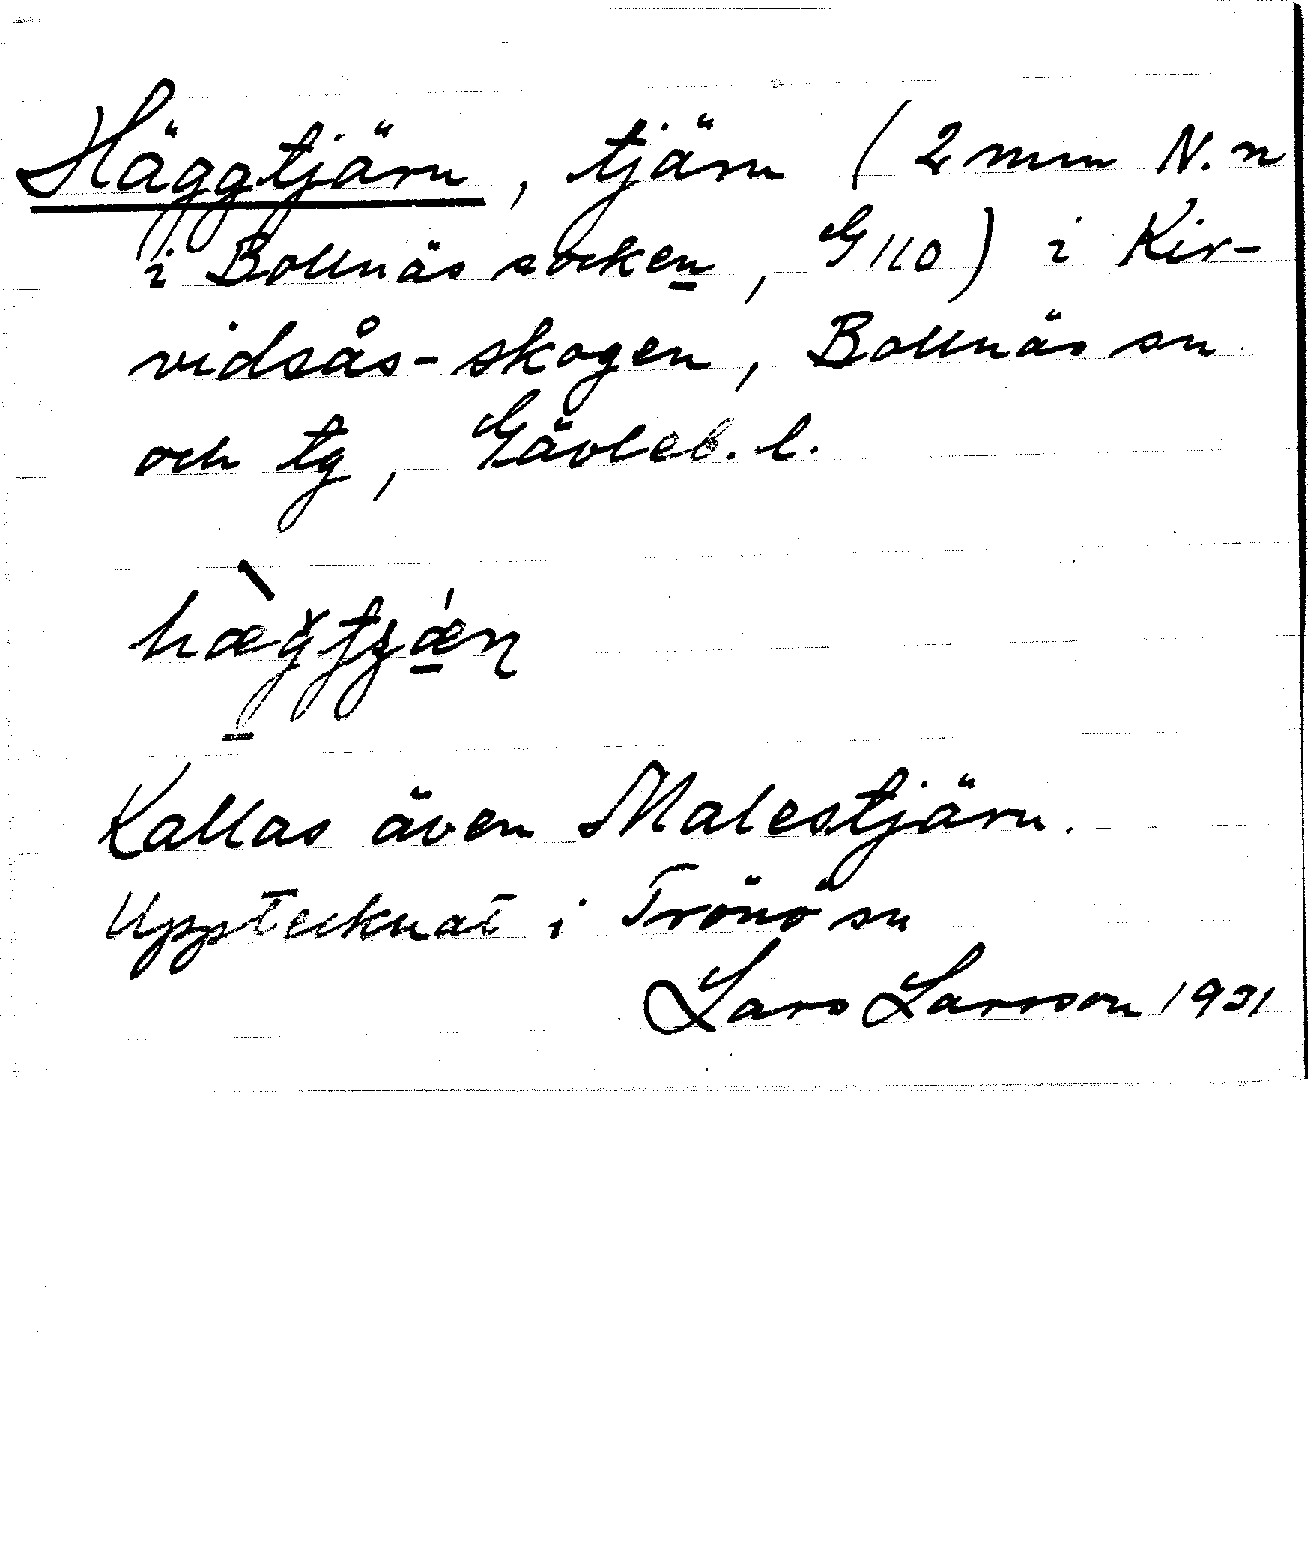 Häggtjärn, tjärn (2 mm N. n
i Bollnäs socken, G 110) i Kir-
vidsås-skogen, Bollnäs sn
och tg, Gävleb. l.
Kallas även Malestjärn.
Upptecknat i Trönö sn
Lars Larsson 1931